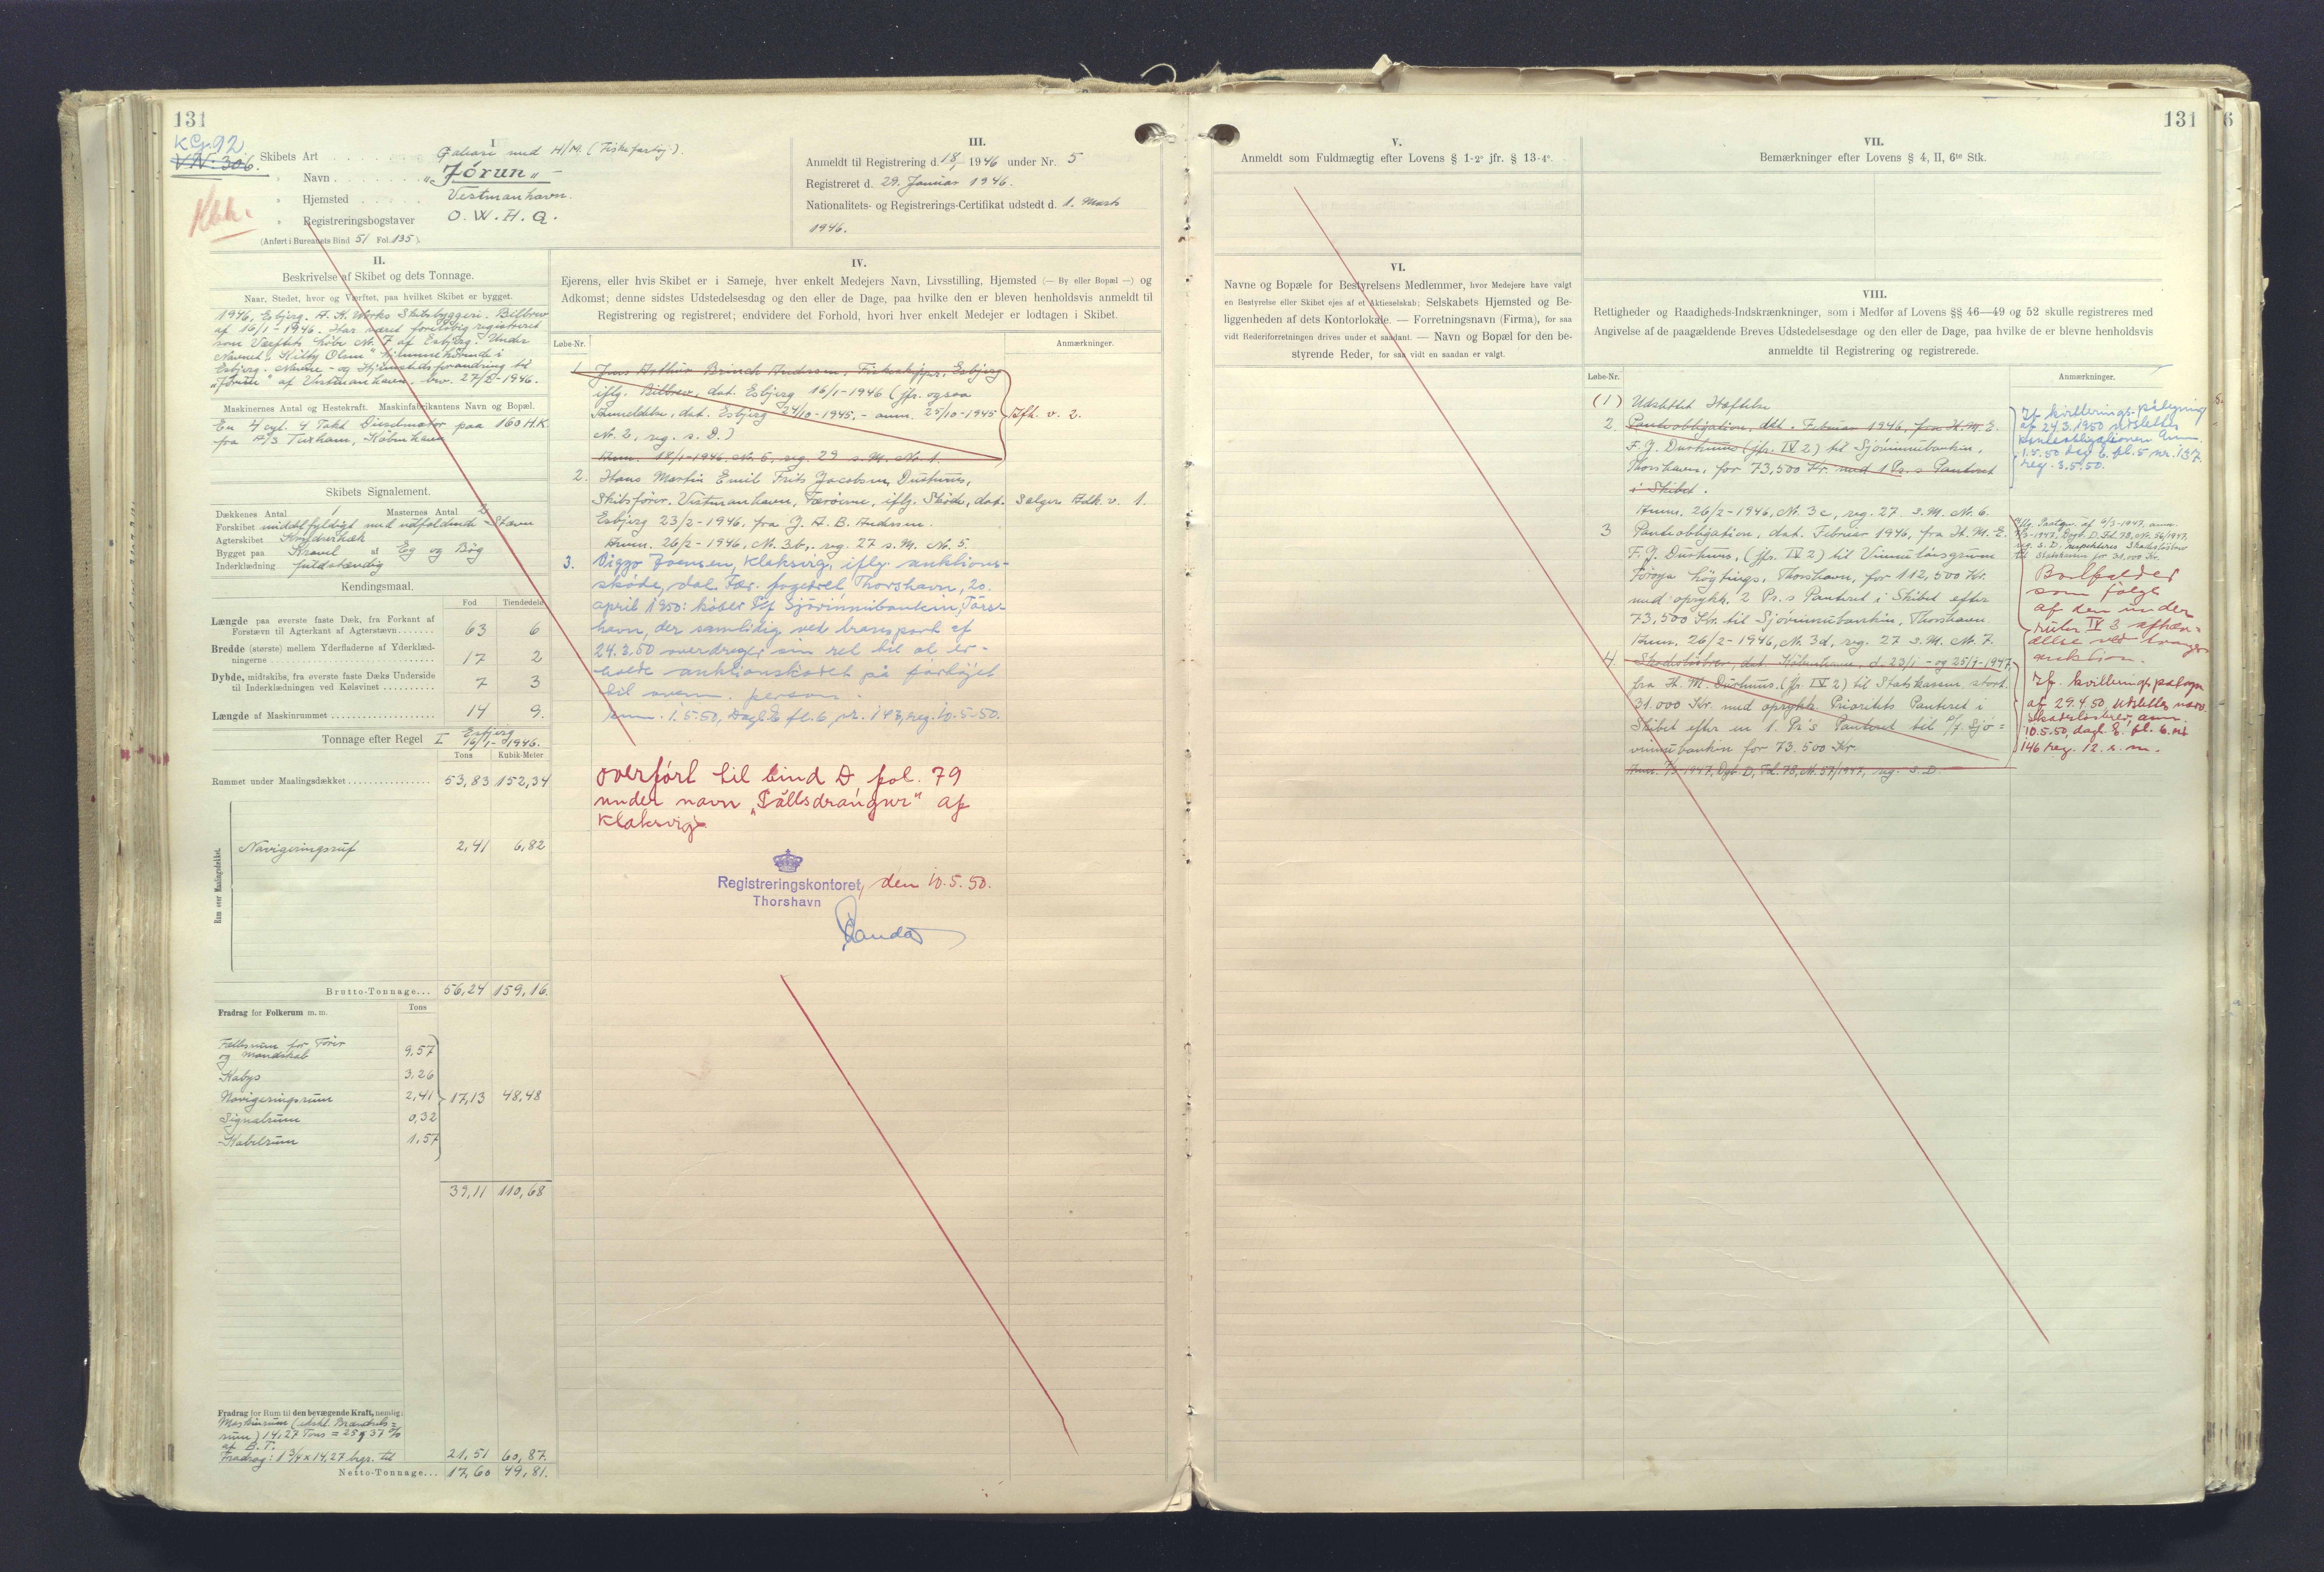 131
KG. 92
VN. 306.
Kbh.
I
Skibets Art Galease med H/M. (Fiskefartøj).
" Navn "Jórun"
" Hjemsted Vestmanhavn.
" Registreringsbogstaver O. W. H. Q.
(Anført i Bureauets Bind 51 Fol. 135)
III.
Anmeldt til Registrering d. 18/1 1946 under Nr. 5
Registreret d. 29. Januar 1946.
Nationalitets- og Registrerings-Certifikat udstedt d. 1. Marts
1946.
II.
Beskrivelse af Skibet og dets Tonnage.
Naar, Stedet, hvor og Værftet, paa hvilket Skibet er bygget.
1946, Esbjerg. A. K. Skibsbyggeri. Bilbrev
af 16/1-1946. Har været foreløbig registreret
som Værftets Nr. 7 af Esbjerg. Under
Navnet "Kilby Olsen" hjemmehørende i
Esbjerg. Navne- og Hjemstedsforandring til
"Jórun" af Vestmanhavn, 27/2-1946.
Maskinernes Antal og Hestekraft. Maskinfabrikantens Navn og Bopæl.
En 4 cyl. 4 Takt Dieselmotor paa 160 H.K.
fra A/S Tuxham, København
Skibets Signalement.
Dækkenes Antal 1 Masternes Antal 2
Forskibet middelfyldigt med udfaldende Stævn
Agterskibet Krydserhæk
Bygget paa Kravel af Eg og Bøg
Inderklædning fuldstændig
Kendingsmaal.
Fod Tiendedele
Længde paa øverste faste Dæk, fra Forkant af
Forstævn til Agterkant af Agterstævn 63 6
Bredde (største) mellem Yderfladerne af Yderklæd-
ningerne 17 2
Dybde, midtskibs, fra øverste faste Dæks Underside
til Inderklædningen ved Kølsvinet 7 3
Længde af Maskinrummet 14 9.
Tonnage efter Regel I Esbjerg 16/1-1946.
Tons Kubik-Meter
Rummet under Maalingsdækket 53,83 152,34
Rum over Maalingsdækket.
Navigeringsruf 2,41 6,82
Brutto-Tonnage... 56,24 159,16.
Fradrag for Folkerum m. m. Tons
Fællesrum for Fører
og Mandskab 9,57
Kabys 3,26
Navigeringsrum 2,41 17,13 48,48
Signalrum 0,32
Kabelrum 1,57
39,11 110,68
Fradrag for Rum til den bevægende Kraft, nemlig:
Maskinrum (ekskl. Brændsels=
rum) 14,27 Tons = 25,37 %
af B.T.
Fradrag: 1 3/4 x 14,27 bgr. til 21,51 60,87.
Netto-Tonnage... 17,60 49,81.
IV.
Ejerens, eller hvis Skibet er i Sameje, hver enkelt Medejers Navn, Livsstilling, Hjemsted (— By eller Bopæl —) og
Adkomst; denne sidstes Udstedelsesdag og den eller de Dage, paa hvilke den er bleven henholdsvis anmeldt til
Registrering og registreret; endvidere det Forhold, hvori hver enkelt Medejer er lodtagen i Skibet.
Løbe-Nr. Anmærkninger.
1. Jens Arthur Brinch Andersen, Fiskeskipper, Esbjerg
iflg. Bilbrev, dat. Esbjerg 16/1-1946 (jfr. ogsaa
Anmeldelse, dat. Esbjerg 24/10-1945. - anm. 25/10-1945 Afh. v. 2.
Nr. 2, reg. s. D.)
Anm. 18/1-1946. Nr. 5, reg. 29 s. M. Nr. 1.
2. Hans Martin Emil Frits Jacobsen Durhuus,
Skibsfører. Vestmanhavn, Færøerne, iflg. Skøde, dat. Sælgers Adk. v. 1.
Esbjerg 23/2-1946, fra J. A. B. Andersen.
Anm. 26/2-1946, Nr. 3b, reg. 27 s. M. Nr. 5.
3. Viggo Joensen, Klaksvig, iflg. auktions-
skøde, dat. Fær. fogedret Thorshavn, 20.
april 1950: køber P/f Sjóvinnubankin, Tórs-
havn, der samtidig ved transport af
24.3.50 overdrager sin ret til at er-
holde auktionsskødet på fartøjet
til ovenn. person.
Anm. 1.5.50, Dagb. E fl. 6, nr. 143, reg. 10.5.50.
overført til bind D fol. 79
under navn "Sállsdrangur" af
Klaksvig
Registreringskontoret, den 10.5.50.
Thorshavn
131
6
V.
Anmeldt som Fuldmægtig efter Lovens § 1-2° jfr. § 13-4°.
VI.
Navne og Bopæle for Bestyrelsens Medlemmer, hvor Medejere have valgt
en Bestyrelse eller Skibet ejes af et Aktieselskab; Selskabets Hjemsted og Be-
liggenheden af dets Kontorlokale. — Forretningsnavn (Firma), for saa
vidt Rederiforretningen drives under et saadant. — Navn og Bopæl for den be-
styrende Reder, for saa vidt en saadan er valgt.
VII.
Bemærkninger efter Lovens § 4, II, 6te Stk.
VIII.
Rettigheder og Raadigheds-Indskrænkninger, som i Medfør af Lovens §§ 46—49 og 52 skulle registreres med
Angivelse af de paagældende Breves Udstedelsesdage og den eller de Dage, paa hvilke de er blevne henholdsvis
anmeldte til Registrering og registrerede.
Løbe-Nr. Anmærkninger.
(1) Udslettet Hæftelse
2. Panteobligation, dat. Februar 1946, fra H. M. E.
F. J. Durhuus (jfr. IV 2) til Sjóvinnubankin,
Thorshavn, for 73,500 Kr. med 1 Pr.s Panteret
i Skibet.
Anm. 26/2-1946, Nr. 3c, reg. 27. s. M. Nr. 6.
If. kvitteringspåtegning
af 24.3.1950 udslettes
panteobligationen. Anm.
1.5.50 dag E. fl. 5 nr. 137
reg. 3.5.50.
3 Panteobligation, dat. Februar 1946, fra H. M. E.
F. J. Durhuus, (jfr. IV 2) til Vinnulánsgrunn
Føroya løgtings, Thorshavn, for 112,500 Kr.
med oprykk. 2 Pr.s Panteret i Skibet efter
73,500 Kr. til Sjóvinnubankin, Thorshavn.
Anm. 26/2-1946, Nr. 3d, reg. 27 s. M. Nr. 7.
Iflg. Paategn. af 6/3-1947, anm.
7/3-1947, Dagb. D. Fol. 78, Nr. 56/1947,
reg. s. D. respekteres Skadesløsbrev
til Statskassen for 31.000 Kr.
Bortfalder
som følge
af den under
rubr. IV 3 afhæn-
delse ved tvangs
auktion.
4. Skadesløsbrev, dat. København, d. 23/1- og 25/1-1947,
fra H. M. Durhuus. (jfr. IV 2) til Statskassen, stort
31.000 Kr. med oprykk. Prioritets Panteret i
Skibet efter en 1. Pr's Panteret til P/f. Sjó=
vinnubankin for 73.500 Kr.
Anm. 7/3 1947, Dgb. D, Fol. 78, Nr. 57/1947, reg. s. D.
If. kvitteringspåtegn
af 29.4.50, udslettes nærv.
skadesløsbrev, anm.
10.5.50, dagb. E. fl. 6. nr
146 reg. 12. s. m.